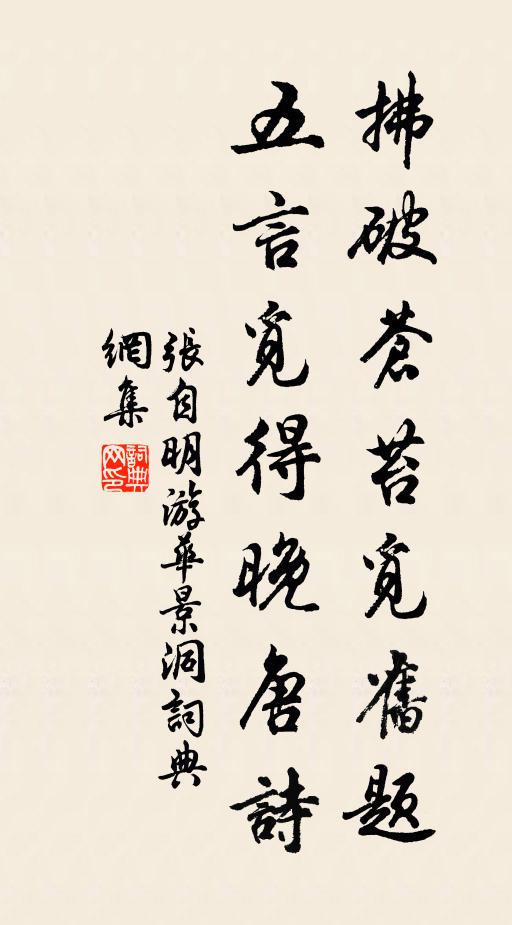 拂破蒼苔覓舊題
五言覓得晚唐詩
張自明游華景洞詞典
網集
詞典網印